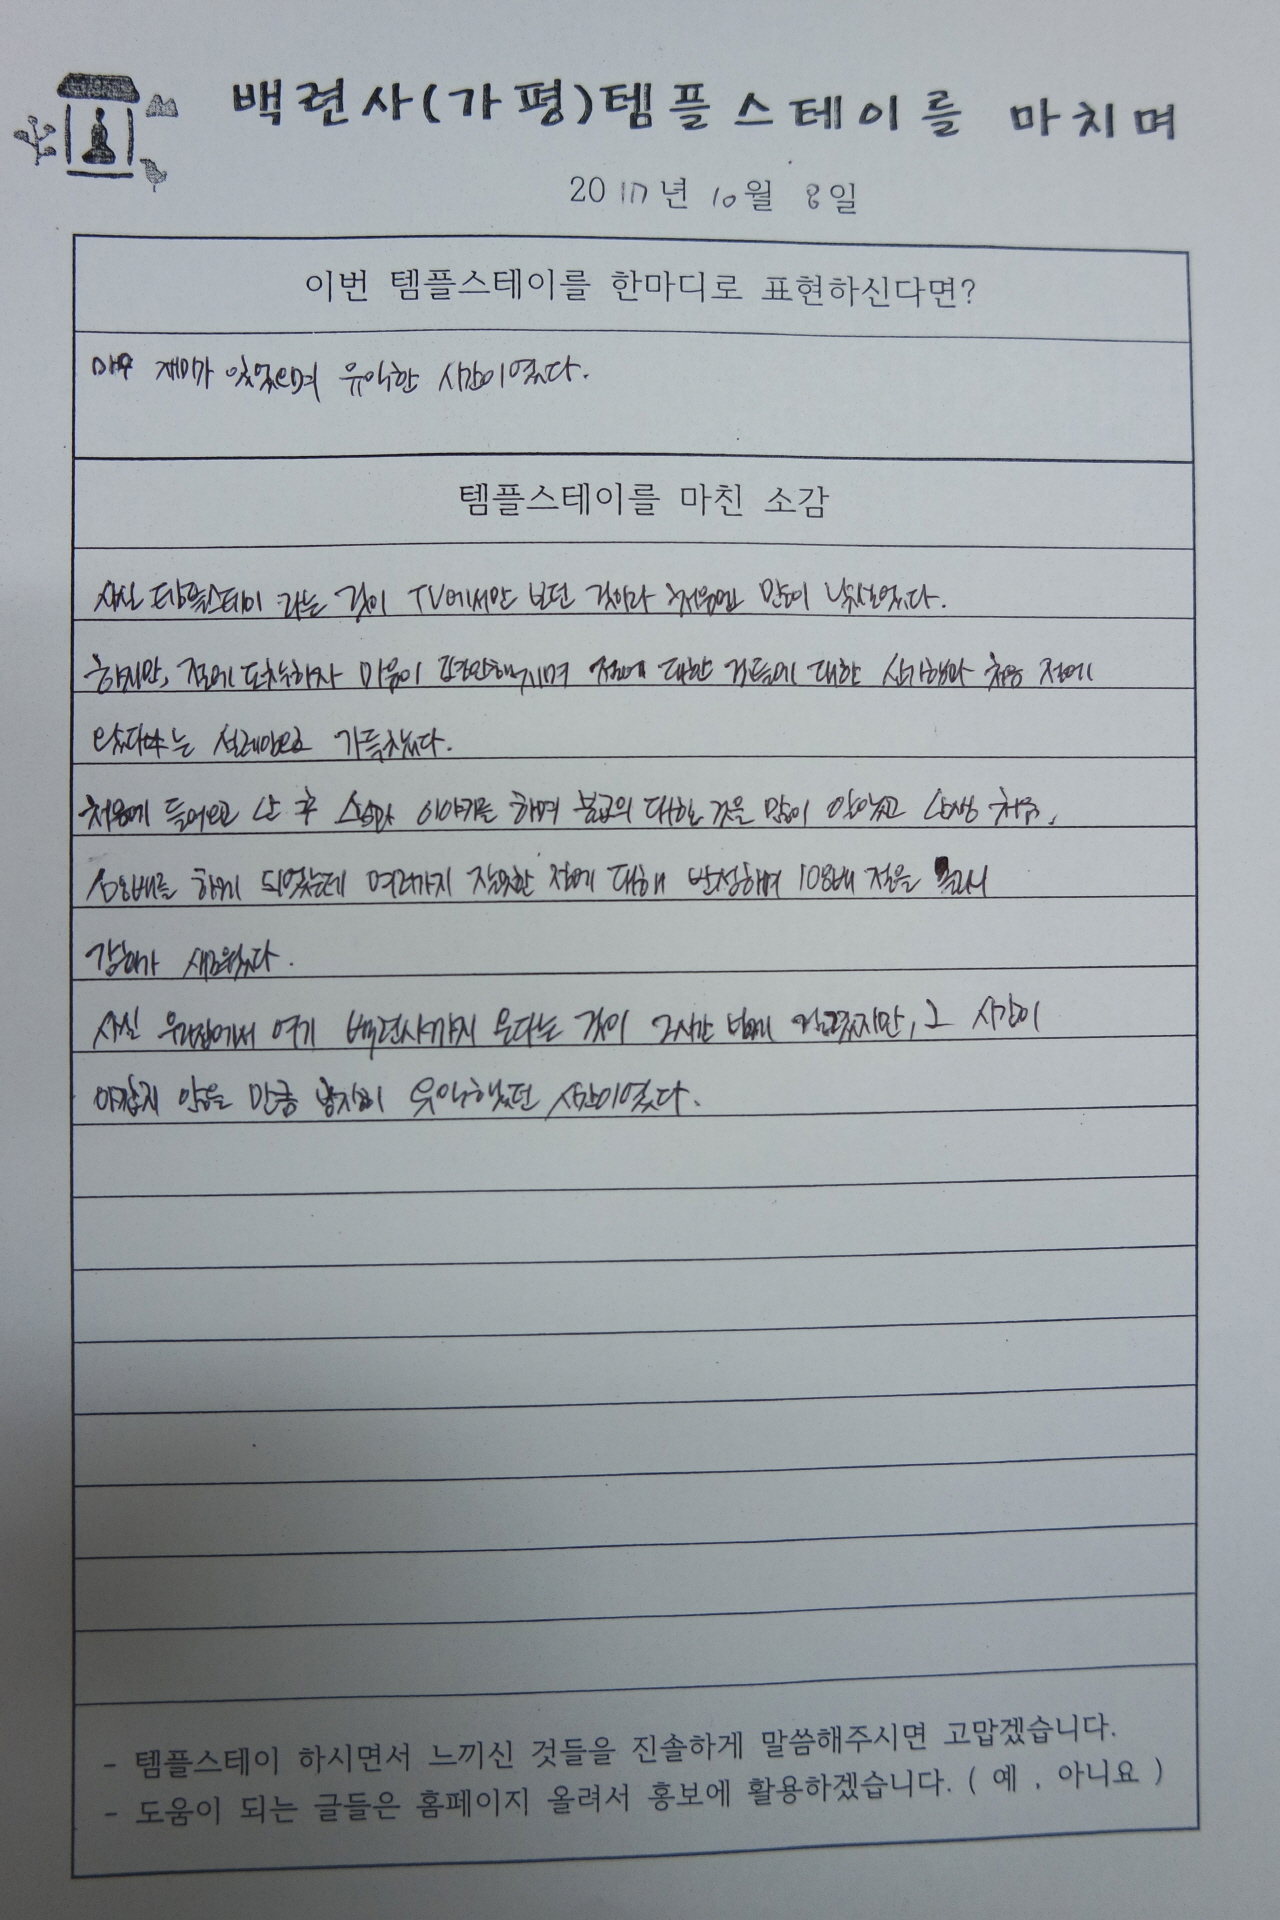 백련사(가평)템플스테이를 마치며
2017년 10월 8일
이번 템플스테이를 한마디로 표현하신다면?
매우 재미가 있었으며 유익한 시간이였다.
템플스테이를 마친 소감
사실 템플스테이 라는 것이 TV에서만 보던 것이라 처음엔 많이 낯설었다.
하지만, 절에 도착하자 마음이 편안해지며 절에 대한 것들에 대한 신기함과 처음 절에
왔다라는 설레임으로 가득찼다.
처음에 들어오고 난 후 스님과 이야기를 하며 불교의 대한 것을 많이 알았고 난생 처음,
108배를 하게 되었는데 여러가지 잘못한 점에 대해 반성하며 108배 절을 올려서
감회가 새로웠다.
사실 우리집에서 여기 백련사까지 온다는 것이 2시간 넘게 걸렸지만, 그 시간이
아깝지 않을 만큼 굉장히 유익했던 시간이였다.
- 템플스테이 하시면서 느끼신 것들을 진솔하게 말씀해주시면 고맙겠습니다.
- 도움이 되는 글들은 홈페이지 올려서 홍보에 활용하겠습니다. ( 예 , 아니요 )